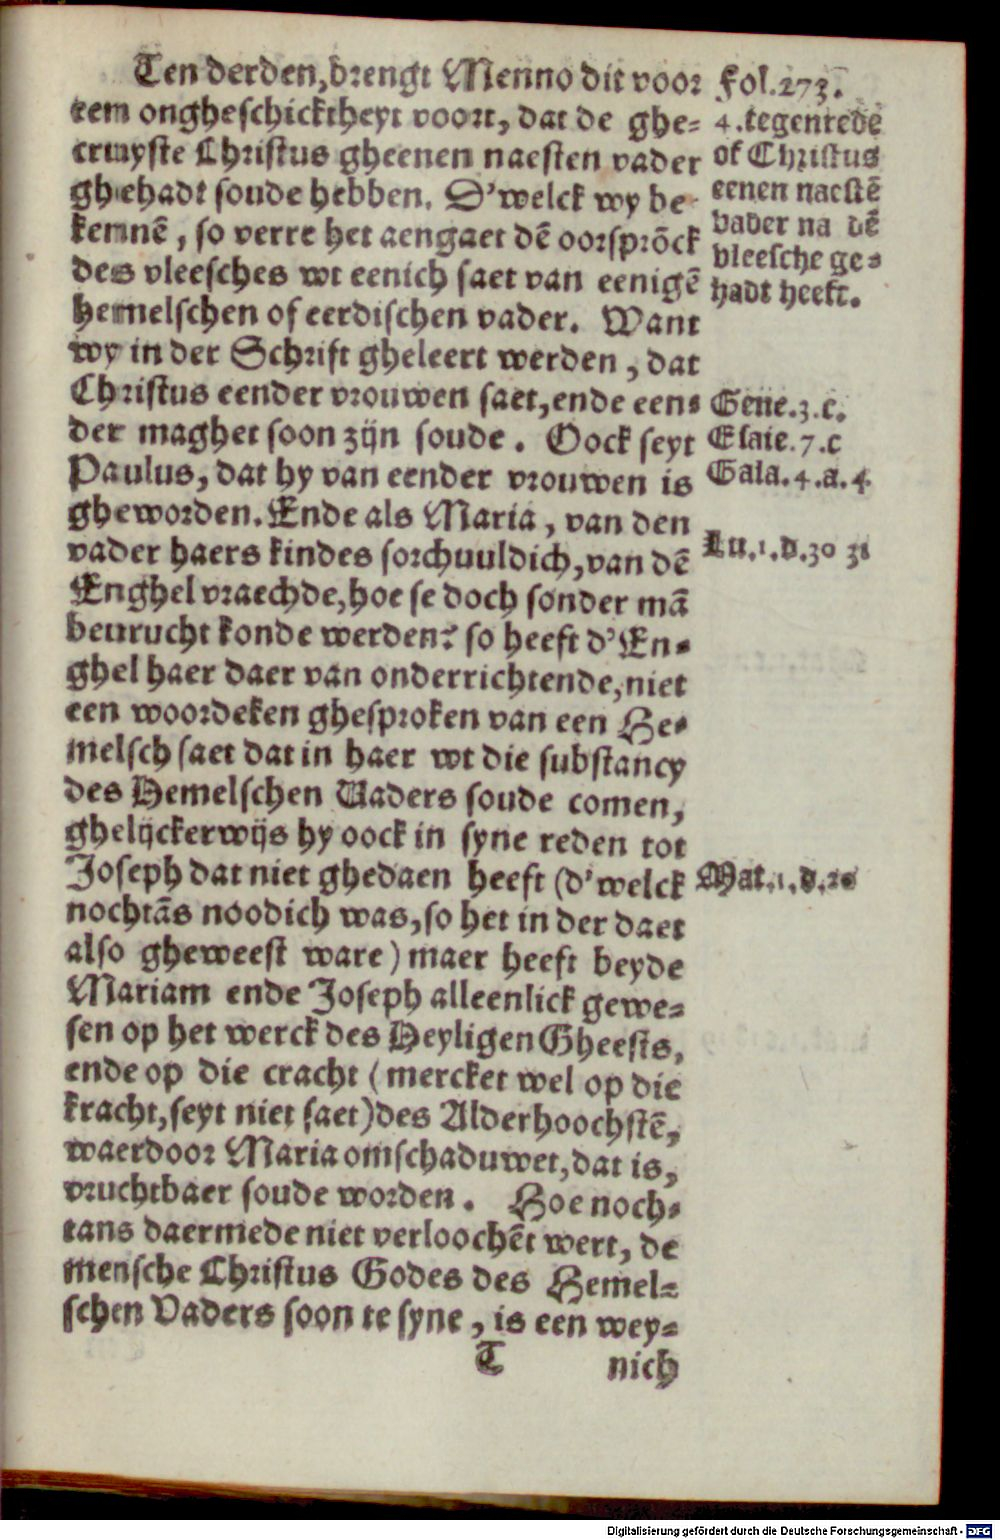 Ten derden, brengt Menno dit voor
eem ongheschicktheyt voort, dat de ghe-
cruyste Christus gheenen naesten vader
ghehadt soude hebben. D'welck wy be-
kennē, so verre het aengaet dē oorsprōck
des vleesches wt eenich saet van eenigē
hemelschen of eerdischen vader. Want
wy in der Schrift gheleert werden, dat
Christus eender vrouwen saet, ende een-
der maghet soon zijn soude. Oock seyt
Paulus, dat hy van eender vrouwen is
gheworden. Ende als Maria, van den
vader haers kindes sorchuuldich, van dē
Enghel vraechde, hoe se doch sonder mā
beurucht konde werden? so heeft d'En-
ghel haer daer van onderrichtende, niet
een woordeken ghesproken van een He-
melsch saet dat in haer wt die substancy
des Hemelschen Vaders soude comen,
ghelijckerwijs hy oock in syne reden tot
Joseph dat niet ghedaen heeft (d'welck
nochtās noodich was, so het in der daet
also gheweest ware) maer heeft beyde
Mariam ende Joseph alleenlick gewe-
sen op het werck des Heyligen Gheests,
ende op die cracht (mercket wel op die
kracht, seyt niet saet) des Alderhoochstē,
waerdoor Maria omschaduwet, dat is,
vruchtbaer soude worden. Hoe noch-
tans daermede niet verloochēt wert, de
mensche Christus Godes des Hemel-
schen Vaders soon te syne, is een wey-
T nich
Fol.273.
4.tegenrede
of Christus
eenen naestē
vader na dē
vleesche ge-
hadt heeft.
Gene.3.c.
Esaie.7.c
Gala.4.a.4
Lu.1.d.30 31
Mat.1.d.20
Digitalisierung gefördert durch die Deutsche Forschungsgemeinschaft - DFG